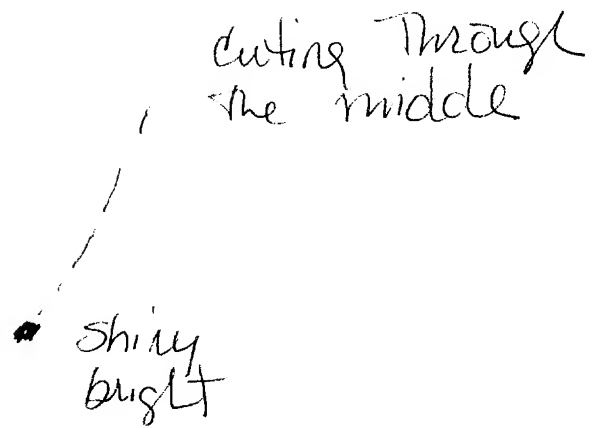 cuting Through
The midde
shiny
bright